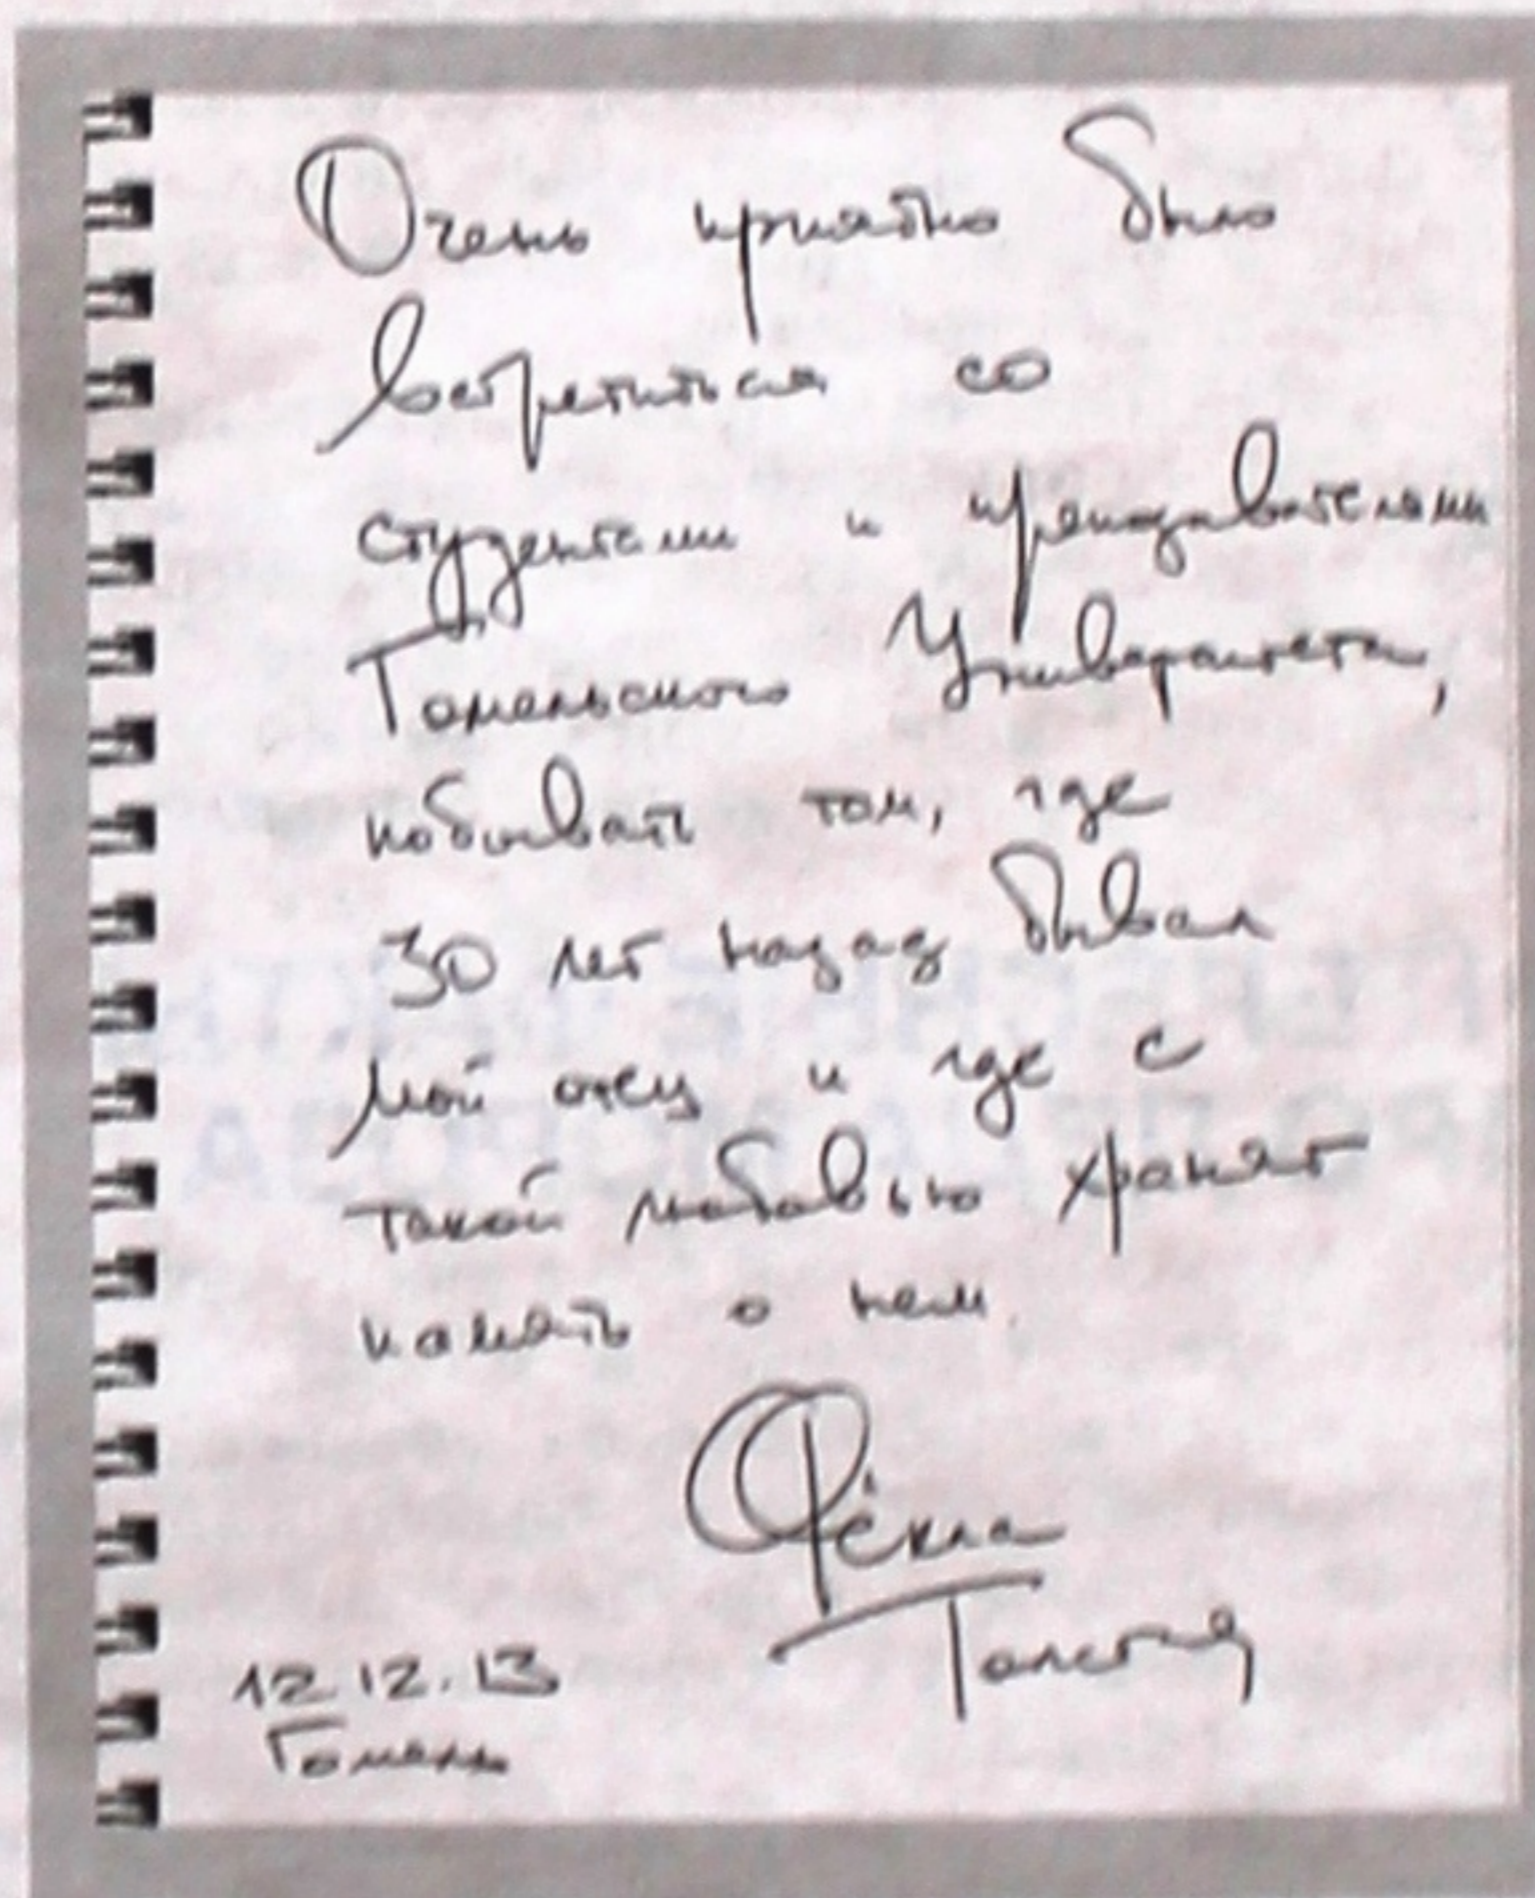 Очень приятно было
встретиться со
студентами и преподавателями
Гомельского Университета,
побывать там, где
30 лет назад бывал
мой отец и где с
такой любовью хранят
память о нем.
Фёкла
Толстая
12.12.13
Гомель